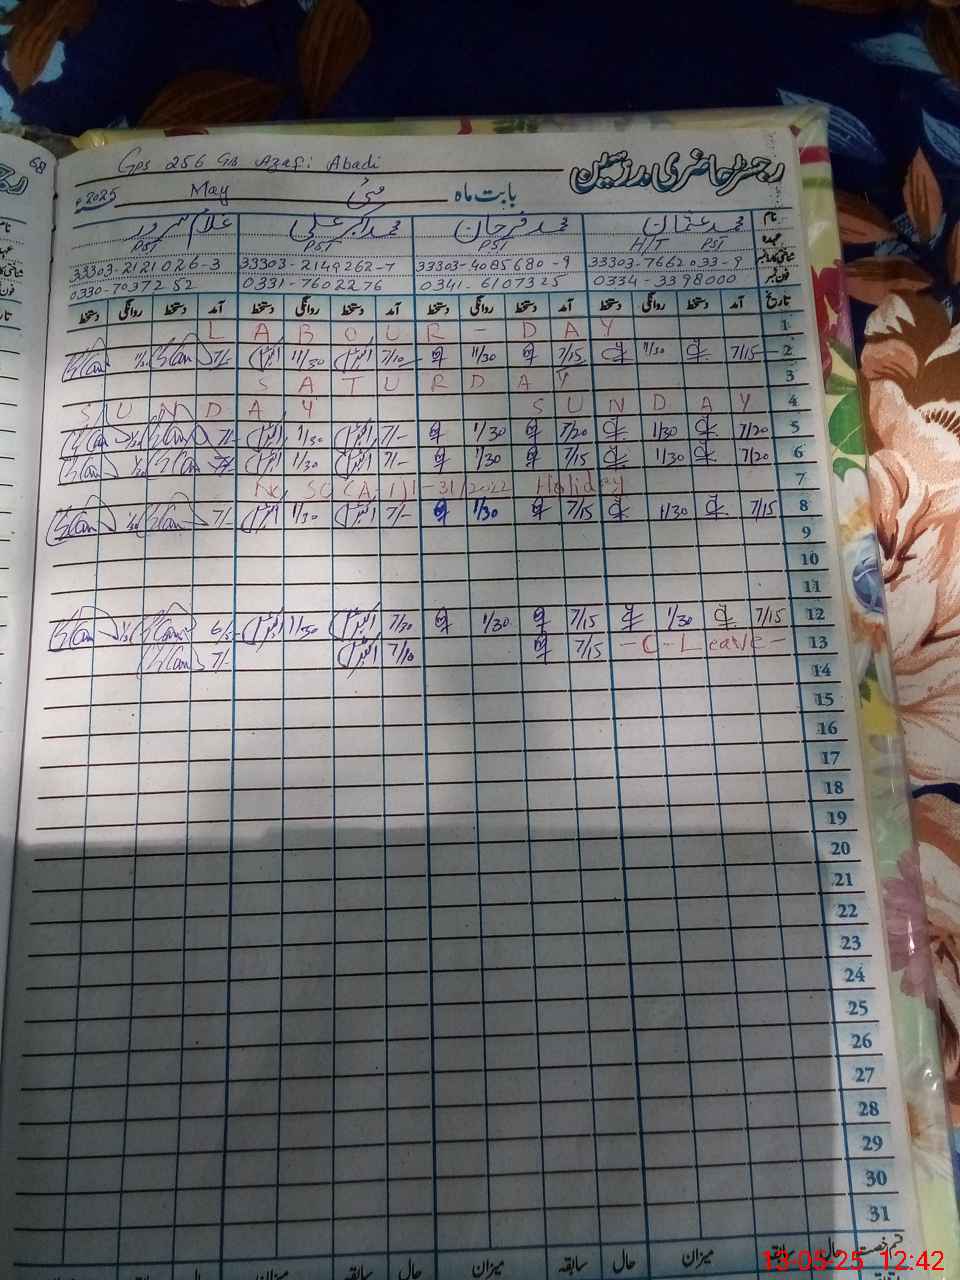 68
Gps 256 GB Azafi Abadi
رجسٹر حاضری مدرسین
بابت ماہ مئی May 2025ء
نام محمد عثمان محمد فرحان محمد اکبر علی غلام سرور
عہدہ H/T PST PST PST PST
33303-7662033-9 33303-4085680-9 33303-2149262-7 33303-2121026-3
فون نمبر 0334-3398000 0341-6107325 0331-7602276 0330-7037252
تاریخ آمد دستخط روانگی دستخط آمد دستخط روانگی دستخط آمد دستخط روانگی دستخط آمد دستخط روانگی دستخط
1 LABOUR-DAY
2 7/15 11/30 7/15 11/30 7/10 11/30 7/-
3 SATURDAY
4 SUNDAY SUNDAY
5 7/20 1/30 7/20 1/30 7/- 1/30 7/-
6 7/20 1/30 7/15 1/30 7/- 1/30
7 No, SO (A.1) 1-31/2022 Holiday
8 7/15 1/30 7/15 1/30 7/- 1/30 7/-
9
10
11
12 7/15 1/30 7/15 1/30 7/30 11/30
13 -C-Leave- 7/15 7/10 7/-
14
15
16
17
18
19
20
21
22
23
24
25
26
27
28
29
30
31
حال سابقہ میزان حال سابقہ میزان حال سابقہ میزان حال
13-05-25 12:42